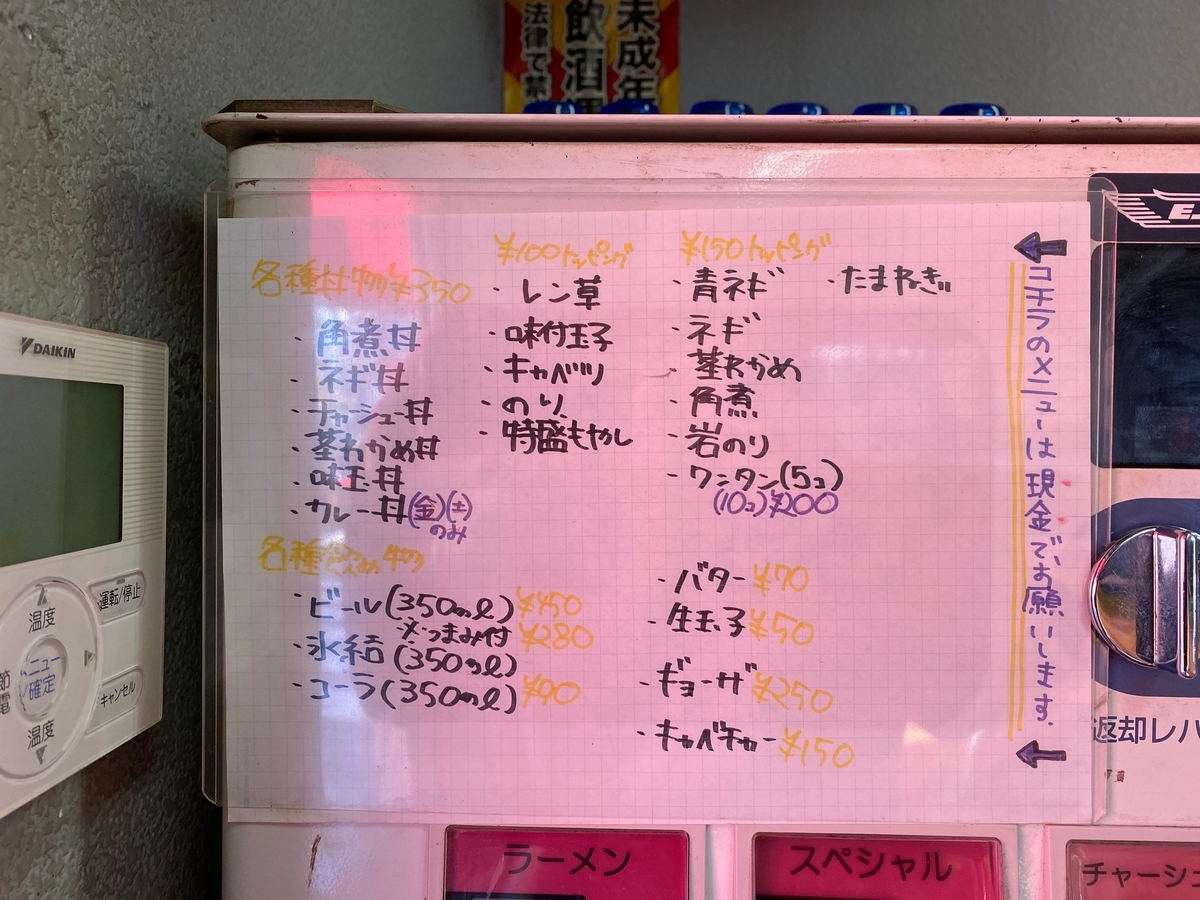 未成年
飲酒
法律で禁
DAIKIN
運転/停止
温度
メニュー
/確定
キャンセル
節
電
温度
各種丼物¥350
・角煮丼
・ネギ丼
・チャーシュー丼
・茎わかめ丼
・味玉丼
・カレー丼(金)(土)
のみ
各種飲み物
・ビール(350ml)¥450
※つまみ付
・氷結(350ml)¥280
・コーラ(350ml)¥90
¥100トッピング
・レン草
・味付玉子
・キャベツ
・のり
・特盛もやし
¥150トッピング
・青ネギ
・ネギ
・茎わかめ
・角煮
・岩のり
・ワンタン(5コ)
(10コ)¥200
・たまねぎ
・バター¥70
・生玉子¥50
・ギョーザ¥250
・キャベチャー¥150
コチラのメニューは現金でお願いします。
返却レバ
ラーメン
スペシャル
チャーシュ